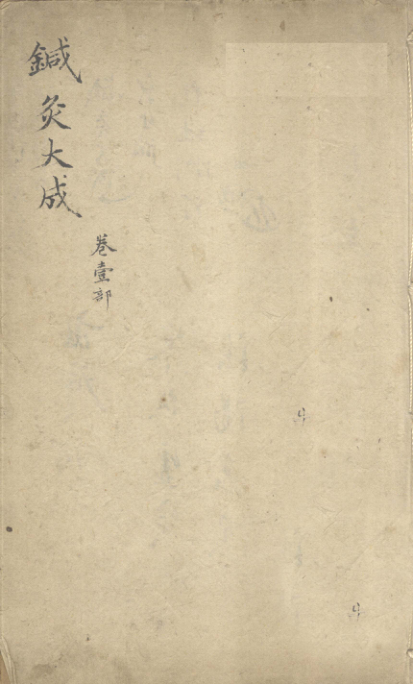 鍼灸大成
卷壹部